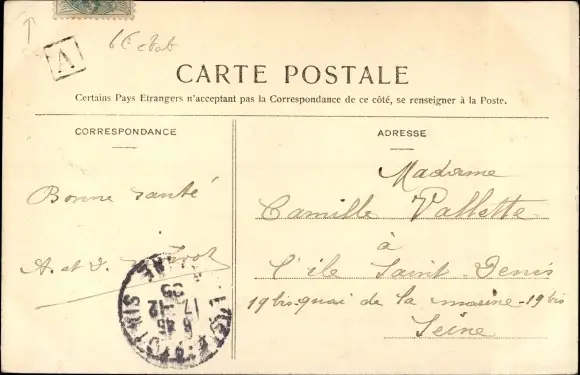 A
CARTE POSTALE
Certains Pays Etrangers n'acceptent pas la Correspondance de ce côté, se renseigner à la Poste.
CORRESPONDANCE
Bonne santé
A. et J.
ADRESSE
Madame
Camille Vallette
à
l'ile Saint-Denis
19 bis quai de la marine-19 bis
Seine